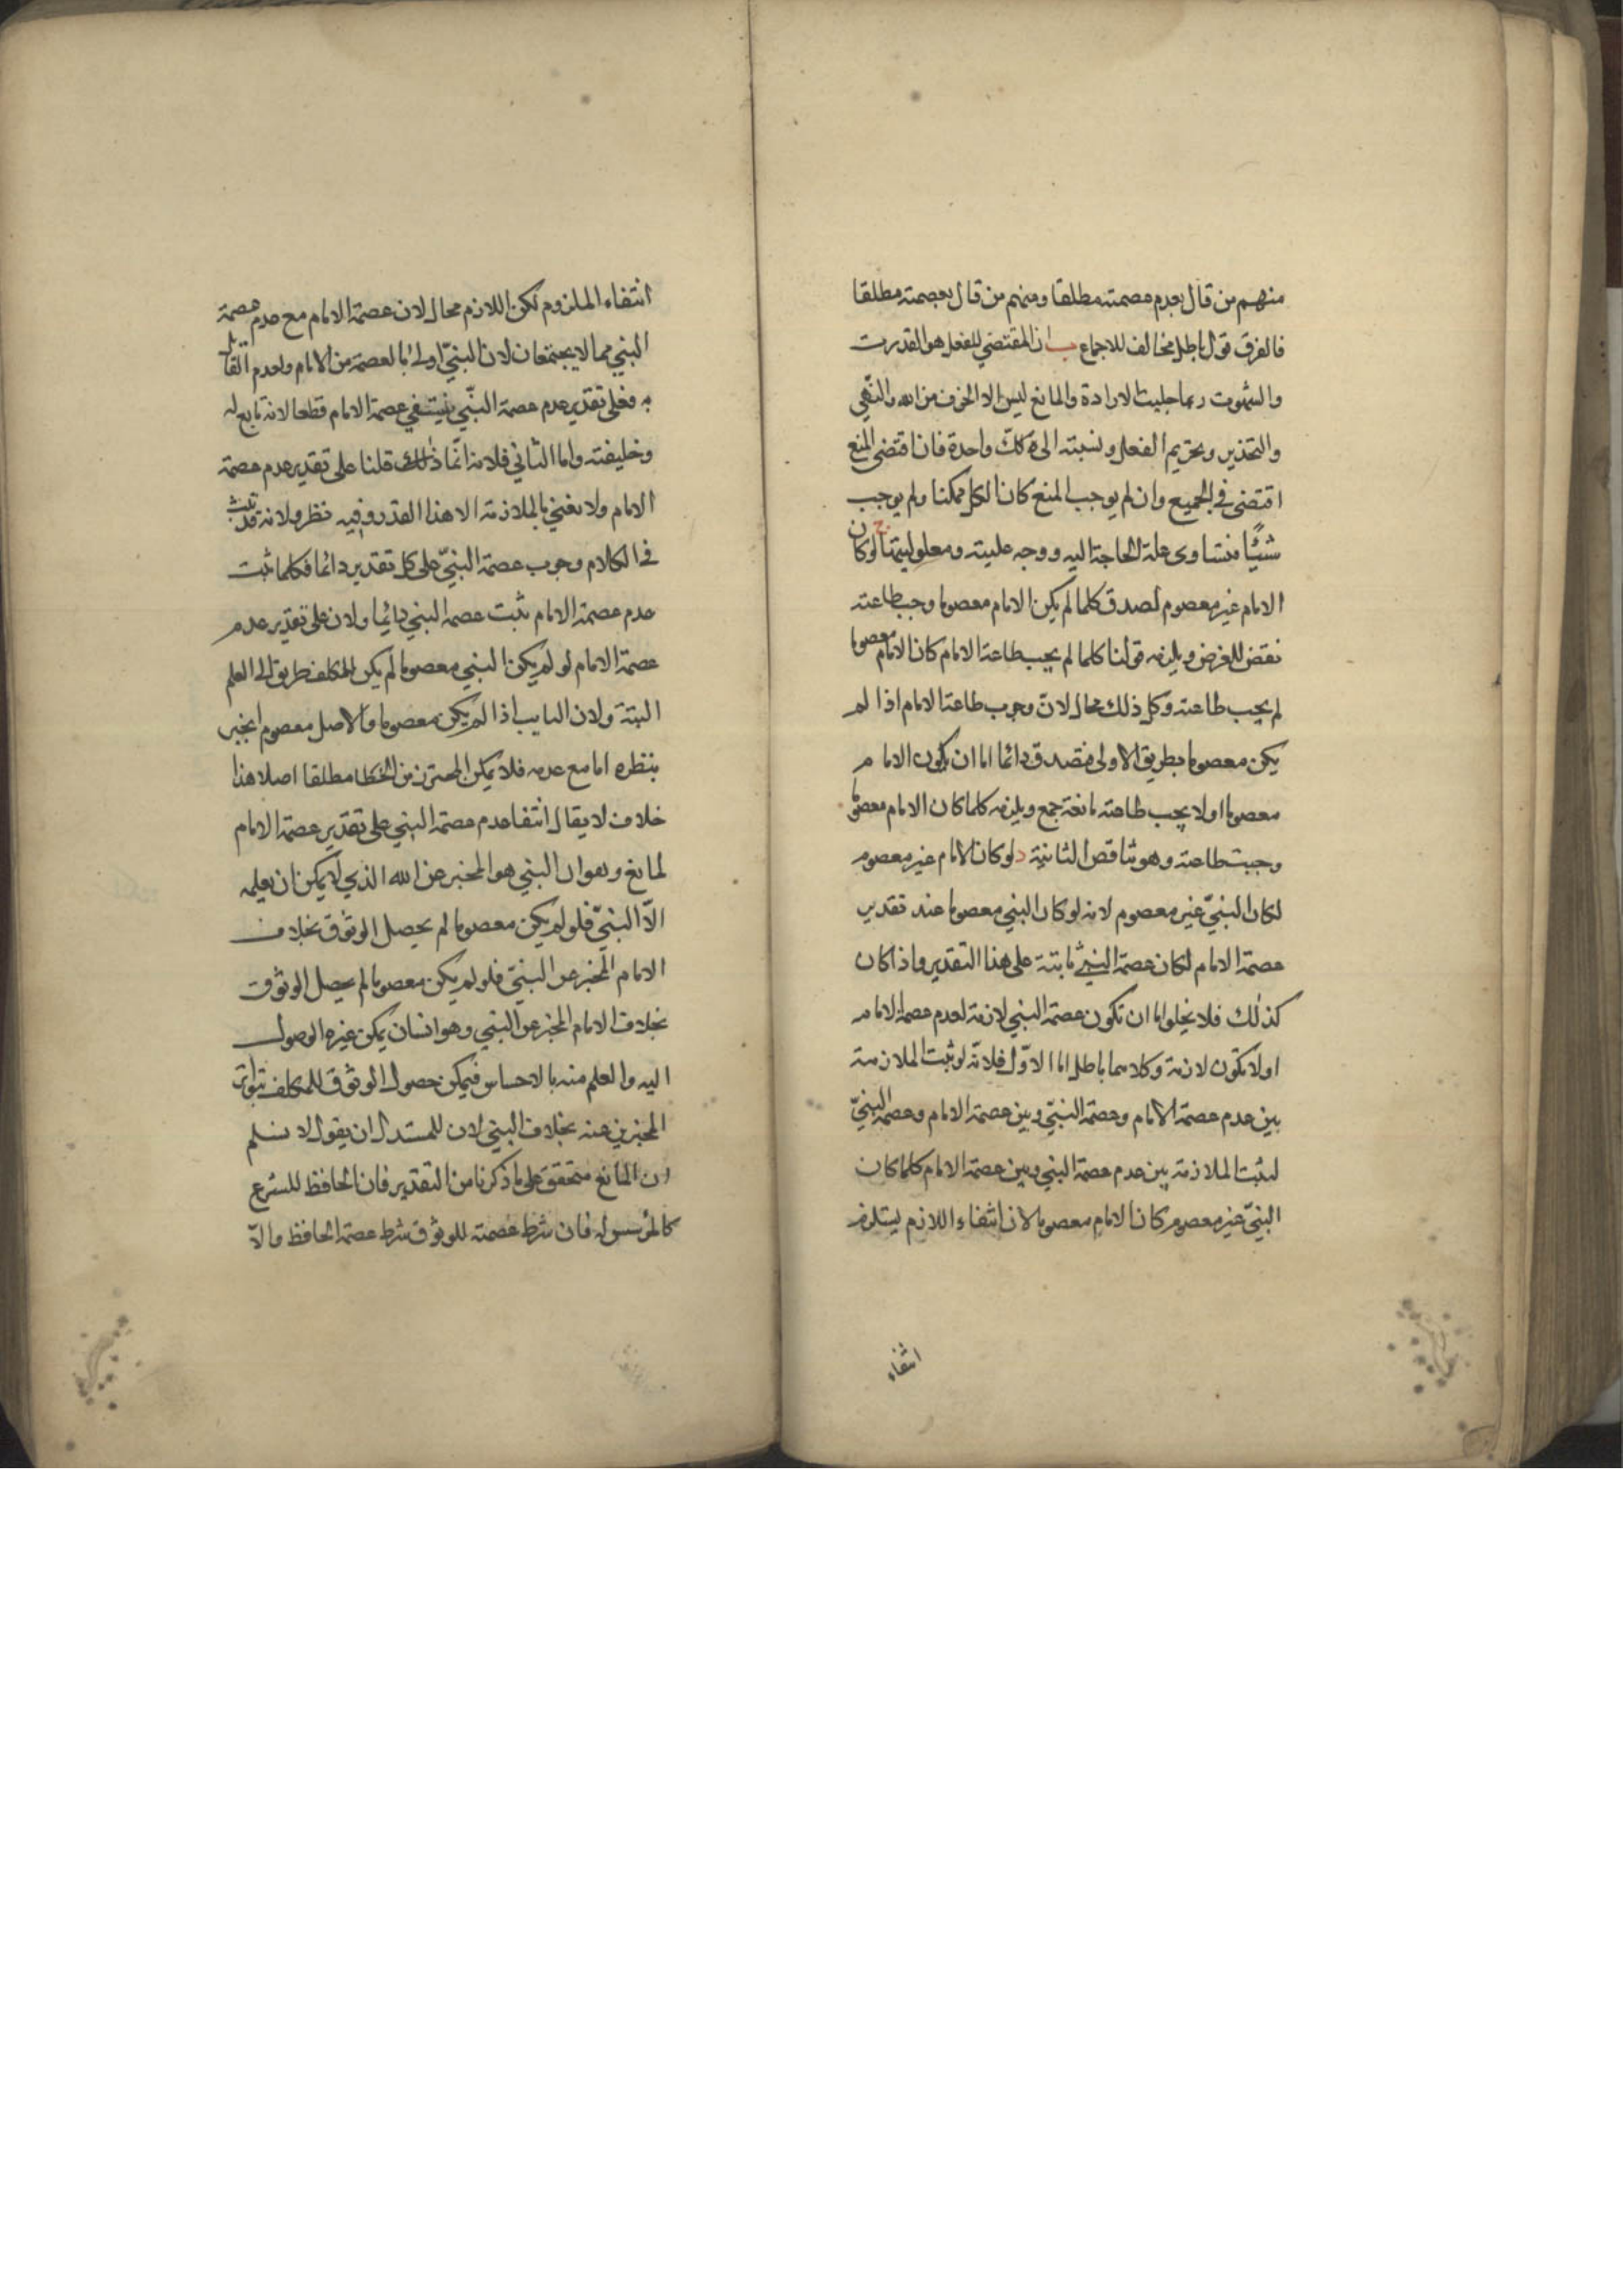 منهم من قال بعدم عصمته مطلقا ومنهم من قال بعصمته مطلقا
فالفرق قول باطل مخالف للاجماع ب ان المقتضي للفعل هو القدرت
والشهوت الارادة والمانع ليس الا الخوف من الله والنهي
والتحذير وتحريم الفعل ونسبته الى كل واحدة فان اقتضى المنع
اقتضى في الجميع وان لم يوجب المنع كان الكل ممكنا ولم يوجب
شيئا فتساوى علة الحاجة اليه ووجه عليته ومعلوليتها ج لو كان
الامام غير معصوم لصدق كلما لم يكن الامام معصوما وجب طاعته
نقض للغرض ويلزمه قولنا كلما لم يجب طاعة الامام كان الامام معصوما
لم يجب طاعته وكل ذلك محال لان وجوب طاعة الامام اذا لم
يكن معصوما بطريق الاولى فتصدق دائما اما ان يكون الامام
معصوما او لا يجب طاعته مانعة جمع ويلزمه كلما كان الامام معصوما
وجبت طاعته وهو تناقض الثانية د لو كان الامام غير معصوم
لكان النبيّ غير معصوم لانه لو كان النبي معصوما عند تقدير
عصمة الامام لكان عصمة النبي ثابتة على هذا التقدير واذا كان
كذلك فلا يخلوا اما ان تكون عصمة النبي لازمة لعدم عصمة الامام
او لا تكون لازمة وكلاهما باطل اما الاوّل فلانّه لو ثبت الملازمة
بين عدم عصمة الامام وعصمة النبيّ وبين عصمة الامام وعصمة النبيّ
لثبت الملازمة بين عدم عصمة النبي وبين عصمة الامام كلما كان
النبيّ غير معصوم كان الامام معصوما لان انتفاء اللازم يستلزم
انتفاء
انتفاء الملزوم لكن اللازم محال لان عصمة الامام مع عدم عصمة
النبي مما لا يجتمعان لان النبيّ اولى بالعصمة من الامام ولعدم القائل
به فعلى تقدير عدم عصمة النبّي ينتفي عصمة الامام قطعا لانه تابع له
وخليفته واما الثاني فلانه انّما ذلك قلنا على تقدير عدم عصمة
الامام ولا نعني بالملازمة الا هذا القدر وفيه نظر ولانه قد ثبت
في الكلام وجوب عصمة النبيّ على كل تقدير دائما فكلما ثبت
عدم عصمة الامام ثبت عصمة النبي دائما ولان على تقدير عدم
عصمة الامام لو لم يكن النبي معصوما لم يكن للمكلف طريق الى العلم
البتة ولان النايب اذا لم يكن معصوما والاصل معصوم انجبر
بنظره اما مع عدمه فلا يمكن المحترز من الخطا مطلقا اصلا هذا
خلاف لا يقال انتفا عدم عصمة النبي على تقدير عصمة الامام
لمانع وهو ان النبي هو المخبر عن الله الذي لا يمكن ان يعلمه
الّا النبيّ فلو لم يكن معصوما لم يحصل الوثوق بخلاف
الامام المخبر عن النبيّ فلو لم يكن معصوما لم يحصل الوثوق
بخلاف الامام المخبر عن النبي وهو انسان يمكن غيره الوصول
اليه والعلم منه بالاحساس فيمكن حصول الوثوق للمكلف بتواتر
المخبرين عنه بخلاف النبي لان للمستدل ان يقول لا نسلم
ان المانع متحقق على ما ذكرنا من التقدير فان الحافظ للشرع
كالمؤسس له فان شرط عصمته للوثوق شرط عصمة الحافظ والّا